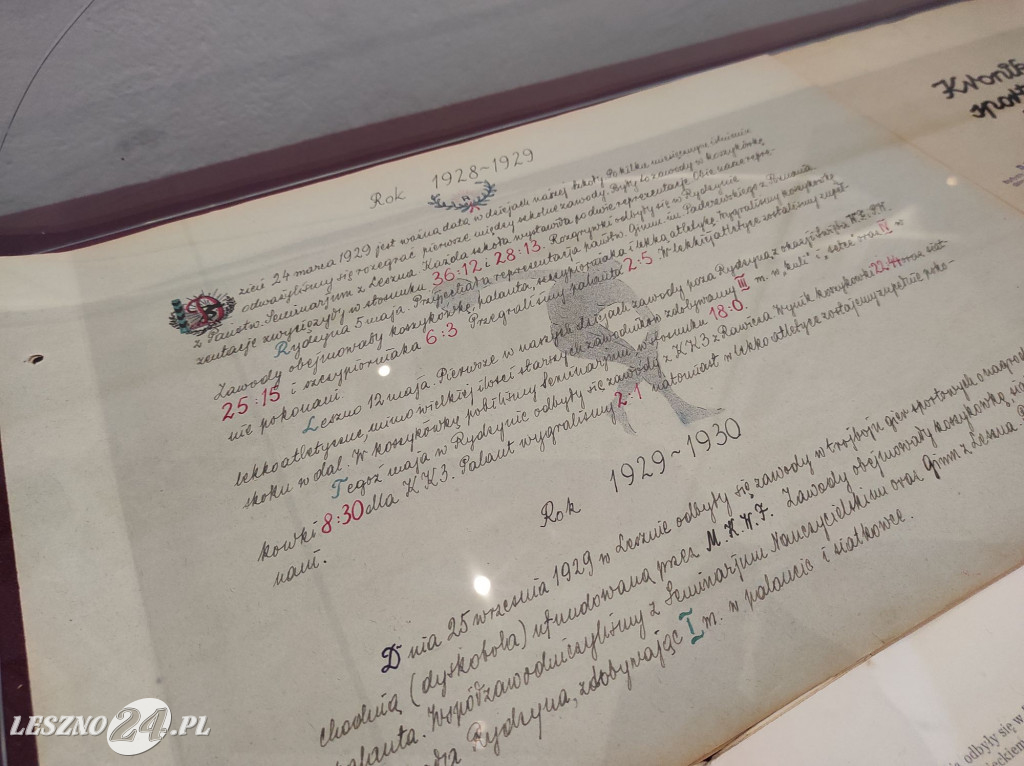 Kronik
sport
Rok 1928~1929
Dzień 24 marca 1929 jest ważną datą w dziejach naszej szkoły. Po kilku
odważyliśmy się rozegrać pierwsze między szkolne zawody. Były to zawody w koszykówkę
z Państw. Seminarjum z Leszna. Każda szkoła wystawiła po dwie reprezentacje. Obie nasze repre-
zentacje zwyciężyły w stosunku 36:12 i 28:13. Rozgrywki odbyły się w Rydzynie.
Rydzyna 5 maja. Przyjechała reprezentacja państw. Gimn. im. Paderewskiego z Poznania
Zawody obejmowały koszykówkę, palanta, szczypiorniaka i lekką atletykę. Wygraliśmy koszykówkę
25:15 i szczypiorniaka 6:3 Przegraliśmy palanta 2:5. W lekkiej atletyce zostaliśmy zupeł-
nie pokonani.
Leszno 12 maja. Pierwsze w naszych dziejach zawody poza Rydzyną z okazji święta W.F. i P.W.
lekkoatletyczne, mimo wielkiej ilości starszych zawodników zdobywamy III m. w „kuli” i „setce” oraz II w
skoku w dal. W koszykówkę pobiliśmy Seminarjum w stosunku 18:0.
Tegoż maja w Rydzynie odbyły się zawody z KK3 z Rawicza Wynik koszykówki 22:14 oraz siat-
kówki 8:30 dla KK3. Palant wygraliśmy 2:1 natomiast w lekkoatletyce zostajemy zupełnie poko-
nani.
Rok 1929~1930
Dnia 25 września 1929 w Lesznie odbyły się zawody w trójboju gier sportowych o nagrodę
chodnią (dyskobola) ufundowaną przez M.K.W.F. Zawody obejmowały koszykówkę,
palanta. Współzawodniczyliśmy z Seminarjum Nauczycielskim oraz Gimn z Leszna.
Rydzyna, zdobywając I m. w palancie i siatkówce.
odbyły się w
LESZNO24.PL